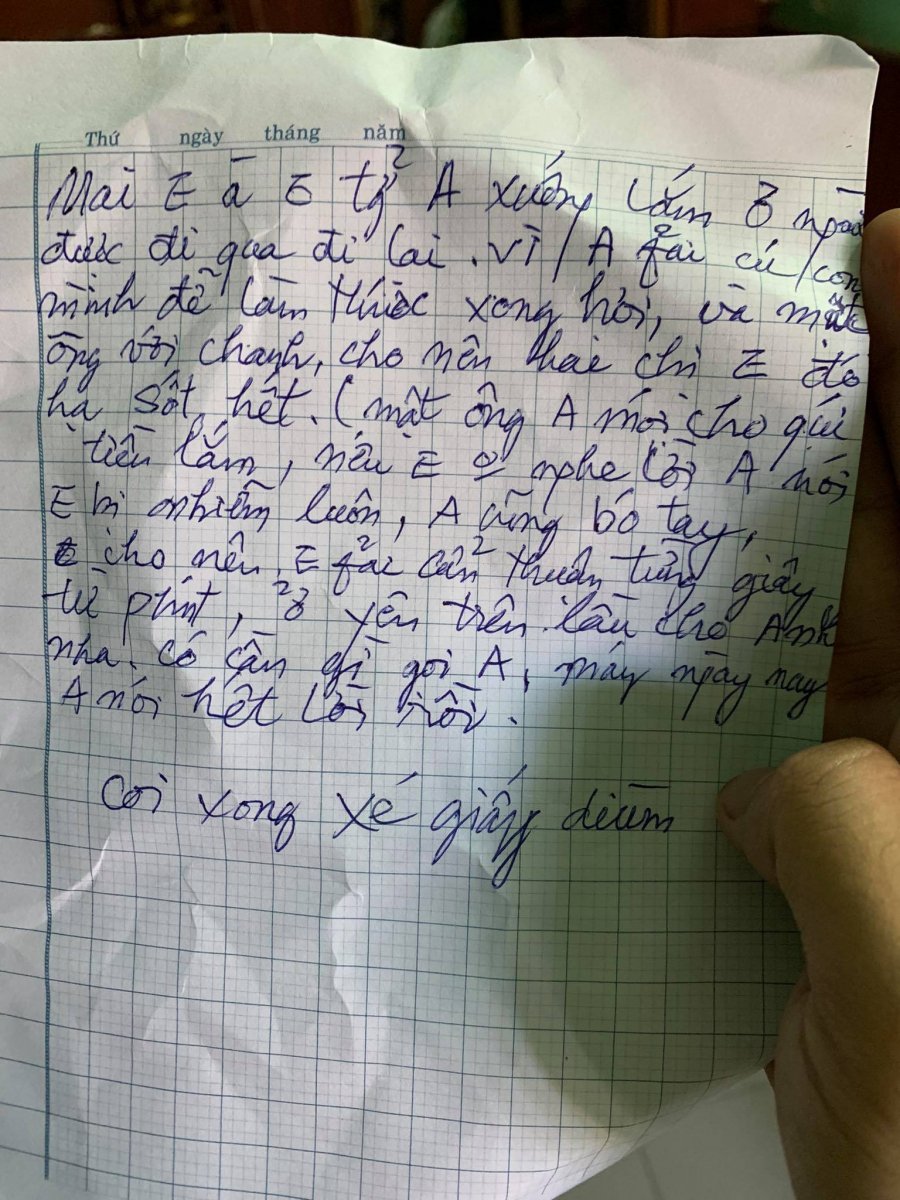 Thứ ngày tháng năm
Mai E ā E tỷ A xuống lắm ở ngoài
được đi qua đi lại. vì A fải cứ con
mình để làm thuốc xong hơi, và mật
ông với chanh, cho nên hai chị E đó
hạ sốt hết. (mật ông A mới cho quí
tiền lắm, nếu E nghe lời A nói
E bị nhiễm luôn, A cũng bó tay,
cho nên E fải cẩn thuẩn từng giây
từ phút, ở yên trên lầu cho Anh
nha. có cần gì gọi A, mấy ngày nay
A nói hết lời rồi.
coi xong xé giấy dùm